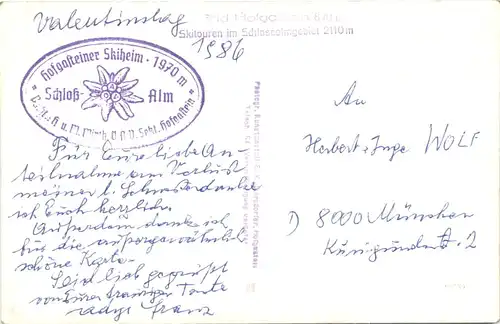 Valentinstag
1986
Bad Hofgastein 870 m
Skitouren im Schlossalmgebiet 2110 m
Hofgasteiner Skiheim · 1970 m
Schloß- Alm
Hofgastein
Für Eure liebe An-
teilnahme am Verlust
meiner l. Schwester danke
ich Euch herzlich.
Außerdem danke ich
für die außergewöhnlich
schöne Karte.
Seid lieb gegrüßt
von Eurer traurigen Tante
An
Herbert + Inge WOLF
D 8000 München
Kunigundenstr. 2